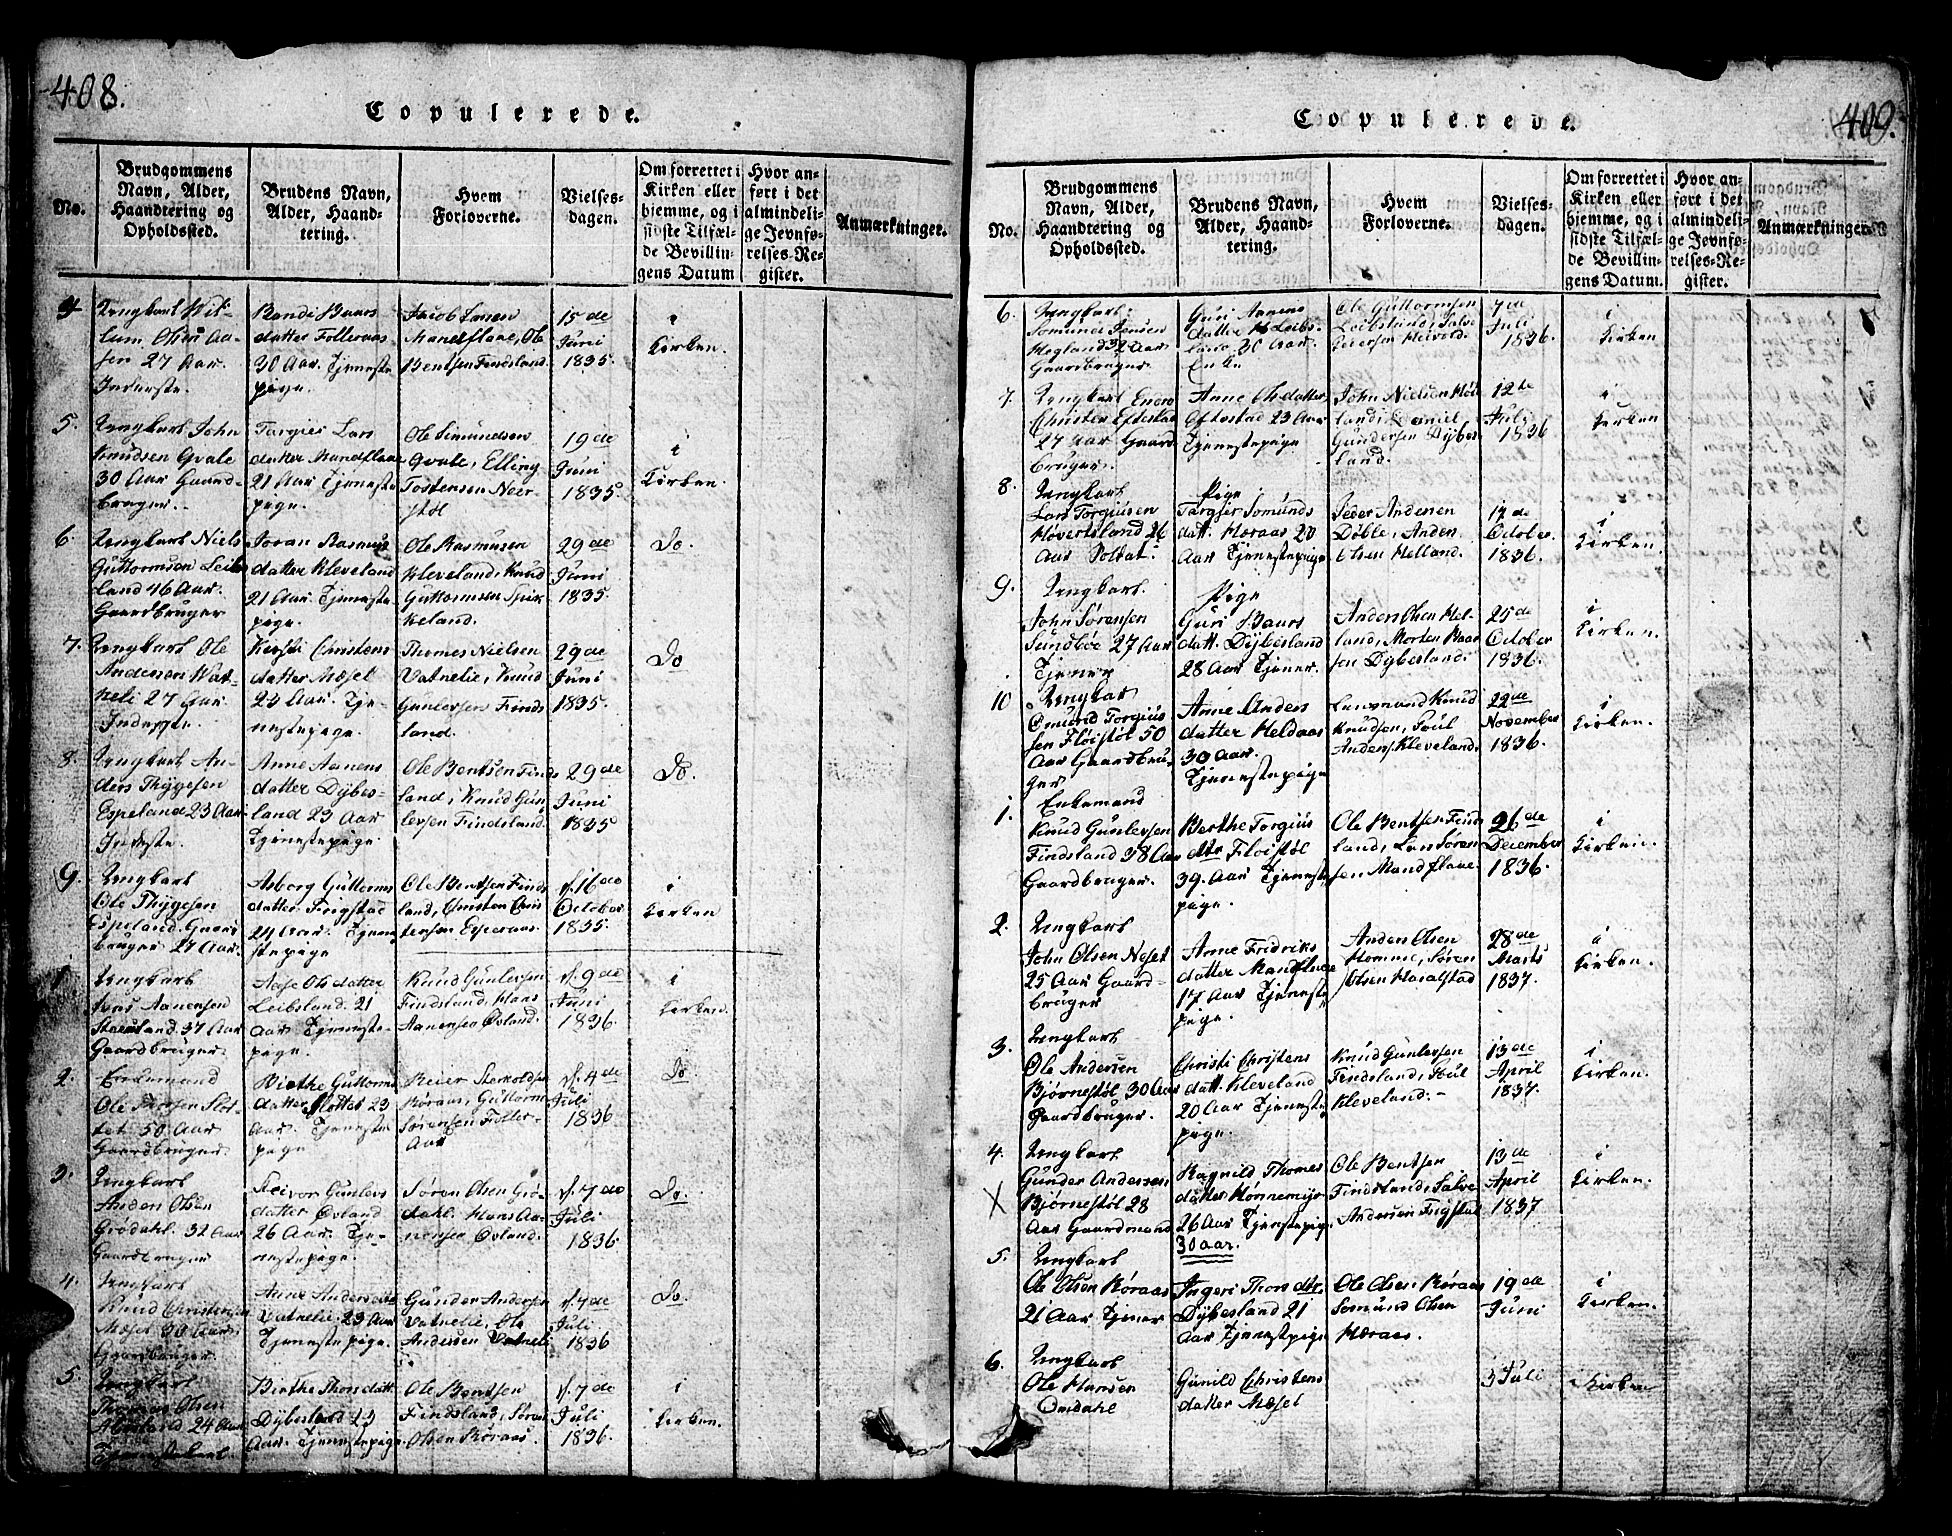 408.
Copulerede.
No.
Brudgommens
Navn, Alder,
Haandtering og
Opholdssted.
Brudens Navn,
Alder, Haand-
tering.
Hvem
Forloverne.
Vielses-
dagen.
Om forrettet i
Kirken eller
hjemme, og i
sidste Tilfæl-
de Bevillin-
gens Datum
Hvor an-
ført i det
almindeli-
ge Jevnfø-
relses-Re-
gister.
Anmærkninger.
4
Ungkarl
27 Aar.
Inderste.
datter Folleraas
30 Aar. Tjeneste
pige.
Jacob Larsen
Mandflaae, Ole
Bentsen Findsland
15de
Juni
1835.
i
Kirken.
5.
Ungkarl John
Knudsen Qvale
30 Aar Gaard-
bruger.
Targier Lars
datter Mandflaae
21 Aar Tjeneste
pige.
Ole Simundsen
Qvale, Elling
Tostensen Neer-
støl
19de
Juni
1835.
i
Kirken.
6.
Ungkarl Niels
Guttormsen Leibs
land 46 Aar.
Gaardbruger
Joran Rasmus
datter Kleveland
21 Aar. Tjeneste
pige.
Ole Rasmusen
Kleveland, Knud
Guttormsen
keland.
29de
Juni
1835
Do.
7.
Ungkarl Ole
Andersen Vat-
neli 27 Aar.
Inderste.
Kirsti Christens
datter Mæsel
23 Aar. Tje-
nestepige.
Thomes Nielsen
Vatnelie, Knud
Gunlevsen Finds
land.
29de
Juni
1835.
Do
8.
Ungkarl An-
ders Thygesen
Espeland 23 Aar
Inderste.
Anne Aanens
datter Dybes-
land 23 Aar
Tjenestepige
Ole Bentsen Finds
land, Knud Gun
levsen Findsland.
29de
Juni
1835
Do.
9.
Ungkarl
Ole Thygesen
Espeland Gaard
bruger 27 Aar.
Asborg Guttorms
datter Frigstad
24 Aar. Tjene
stepige
Ole Bentsen Finds
land, Christen Chris
tensen Esperaas.
d. 16de
October
1835
i
Kirken
1
Ungkarl
Jens Aanensen
37 Aar
Gaardbruger
Aase Olsdatter
Leibsland 21
Aar Tjeneste-
pige.
Knud Gunlevsen
Findsland, Hans
Aanensen Øvland.
d. 9de
Juni
1836.
i
Kirken.
2.
Enkemand
Ole
50 Aar
Gaardbruger.
Birthe Guttorms
datter Slottet 23
Aar. Tjeneste
pige
Reier Sterkoldsen
Røraas, Guttorm
Sørensen Foller-
Aas
d. 4de
Juli
1836
Do.
3.
Ungkarl
Anders Olsen
Grødahl. 32 Aar
Gaardbruger
Seivor Gunlevs
datter Øvland
26 Aar. Tje-
nestepige.
Søren Olsen Grø-
dahl. Hans Aa-
nensen Øvland.
d. 7de
Juli
1836.
Do.
4.
Ungkarl
Knud Christensen
Mæsel 30 Aar.
Gaardbruger.
Anne Andersdatter
Vatnelie. 23 Aar
Tjenestepige.
Gunder Andersen
Vatnelie, Ole
Andersen Vatneli
d. 4de
Juli
1836
Do.
5.
Ungkarl
Thomas Olsen
24 Aar
Tjenestekarl.
Birthe Thorsdatt
Dybesland 23
Aar. Tjenestepige
Ole Bentsen
Findsland, Søren
Olsen Røraas.
d. 7de
Juli
1836.
i
Kirken.
409.
Copulerede.
No.
Brudgommens
Navn, Alder,
Haandtering og
Opholdssted.
Brudens Navn,
Alder, Haand-
tering.
Hvem
Forloverne.
Vielses-
dagen.
Om forrettet i
Kirken eller
hjemme, og i
sidste Tilfæl-
de Bevillin-
gens Datum.
Hvor an-
ført i det
almindeli-
ge Jevnfø-
relses-Re-
gister.
Anmærkninger.
6.
Ungkarl.
Somund Jensen
Hegland 32 Aar
Gaardbruger
Guri Aanens
datter Leibs-
land 30 Aar.
Enke
Ole Guttormsen
Leibsland, Salve
Pedersen Heivold.
7de
Juli
1836.
i
Kirken
7.
Ungkarl
Christen Eftestad
27 Aar Gaard
bruger.
Anne Olsdatter
Eftestad 23 Aar
Tjenestepige
John Nielsen
land, Daniel
Gundersen Dybes
land.
12te
Juli
1836
i
Kirken
8.
Ungkarl
Lars Torgiusen
Høvertsland 26
Aar Soldat.
Pige
Targier Somunds
datt. Høraas 20
Aar Tjenestepige
Peder Andersen
Døble, Anders
Olsen Helland.
17de
October
1836.
i
Kirken.
9.
Ungkarl.
John Sørensen
Sundbøe 27 Aar
Tjener
Pige
Guri Baars
datt. Dybesland
28 Aar Tjener.
Anders Olsen Hel-
land, Morten Baar
sen Dybesland.
25de
October
1836.
i
Kirken.
10
Ungkar
Omund Torgius
sen Fløistøl 50
Aar Gaardbru-
ger
Anne Anders
datter Heldaas
30 Aar.
Tjenestepige
Lensmand Knud
Knudsen, Soul
Anders. Kleveland.
22de
November
1836.
i
Kirken.
1.
Enkemand
Knud Gunlevsen
Findsland 38 Aar
Gaardbruger.
Berthe Torgius
dtr Fløistøl
39. Aar Tjeneste
pige.
Ole Bentsen Finds
land, Lars Søren
sen Mandflaae.
26de
December
1836.
i
Kirken.
2.
Ungkarl
John Olsen Neset
25 Aar Gaard-
bruger
Anne Fridriks
datter Mandflaae
17 Aar Tjeneste
pige.
Anders Olsen
Homme, Søren
Olsen Haralstad
28de
Marts
1837.
i
Kirken.
3.
Ungkarl
Ole Andersen
Bjørnestøl 30 Aar
Gaardbruger.
Christi Christens
datt. Kleveland
20 Aar Tjeneste
pige.
Knud Gunlevsen
Findsland, Soul
Kleveland. -
13de
April
1837.
i
Kirken.
4.
X
Ungkarl
Gunder Andersen
Bjørnestøl 28
Aar Gaardmand
Ragnild Thomes
datter Hønnemyr
26 Aar Tjenestepige
30 aar.
Ole Bentsen
Findsland, Salve
Andersen Frigstad
13de
April
1837
i
Kirken.
5.
Ungkarl
Ole Olsen Røraas
21 Aar Tjener
Ingeri Thors dtr.
Dybesland 21
Aar Tjenestepige
Ole Olsen Røraas
Somund Olsen
Høraas.
19de
Juni
i
Kirken.
6.
Ungkarl
Ole Hansen
Omdahl
Gunild Christens
datter Mæsel
3 Juli
Kirken